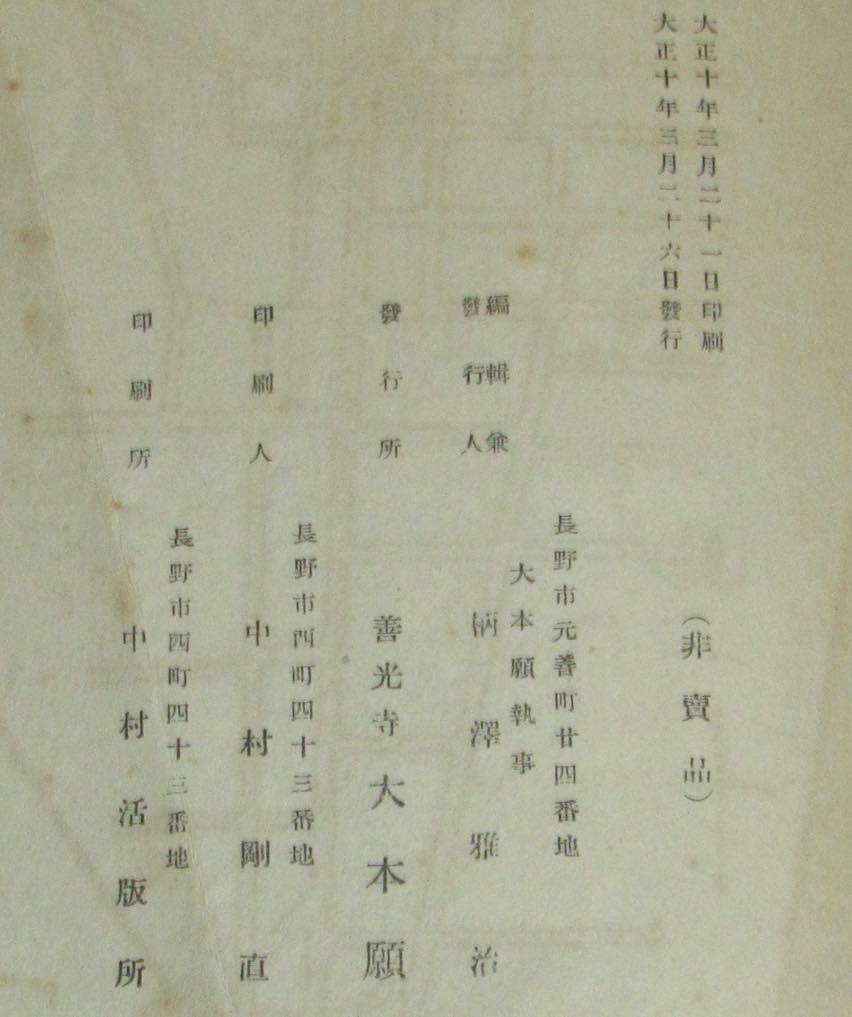 大正十年三月二十一日印刷
大正十年三月二十六日發行
（非賣品）
長野市元善町廿四番地
大本願執事
編輯兼
發行人
柄澤雅治
發行所
善光寺大本願
長野市西町四十三番地
印刷人
中村剛直
長野市西町四十三番地
印刷所
中村活版所